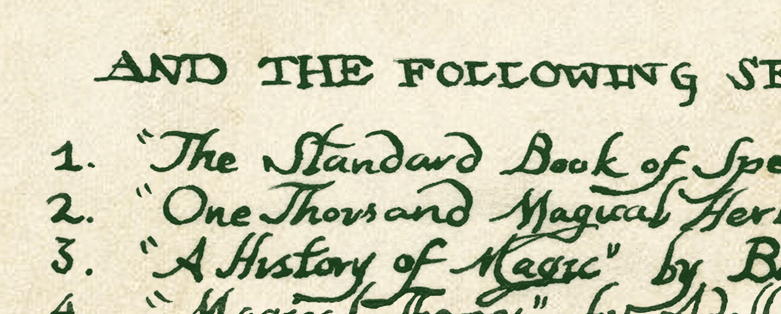 AND THE FOLLOWING SE
1. "The Standard Book of Spe
2. "One Thousand Magical Her
3. "A History of Magic" by B
4. "Magical Theory" by